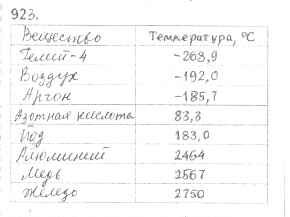 923.
Вещество Температура, °С
Гелий-4 -268,9
Воздух -192,0
Аргон -185,7
Азотная кислота 83,3
Йод 183,0
Алюминий 2464
Медь 2567
Железо 2750